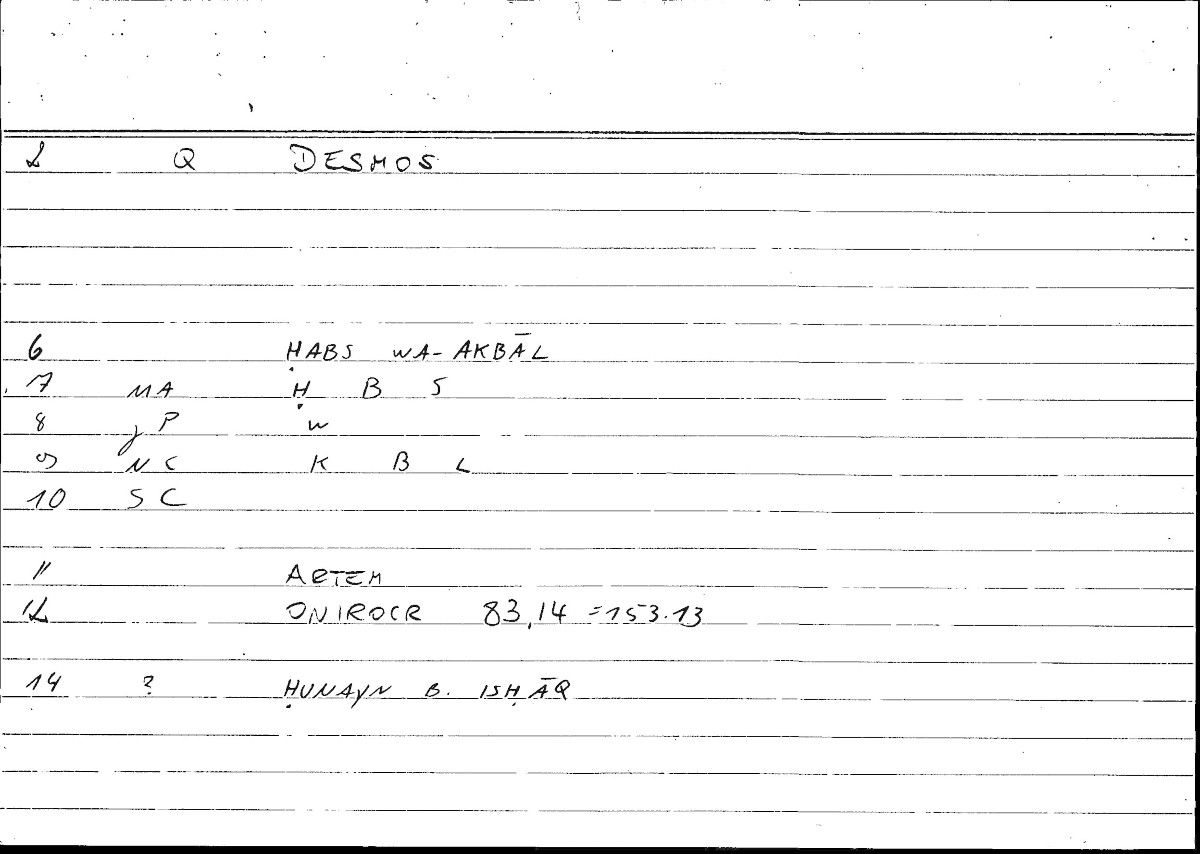 2 Q DESMOS
6 ḤABS WA-AKBĀL
7 MA Ḥ B S
8 P W
9 NC K B L
10 SC
11 ARTEM
12 ONIROCR 83,14 =153.13
14 ? ḤUNAYN B. ISḤĀQ